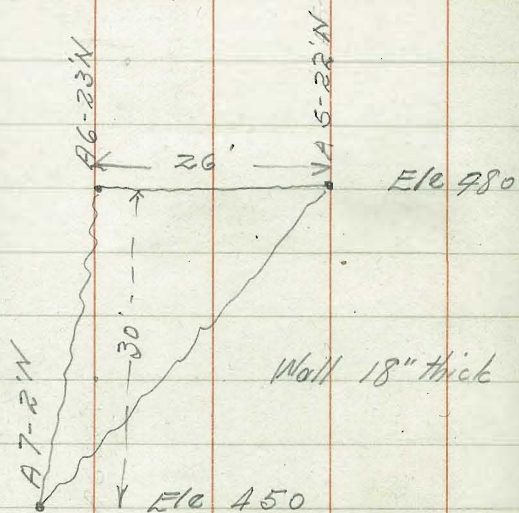 A6-23'N
A5-22'N
26'
Ele 480
30'
Wall 18" thick
A7-2'N
Ele 450